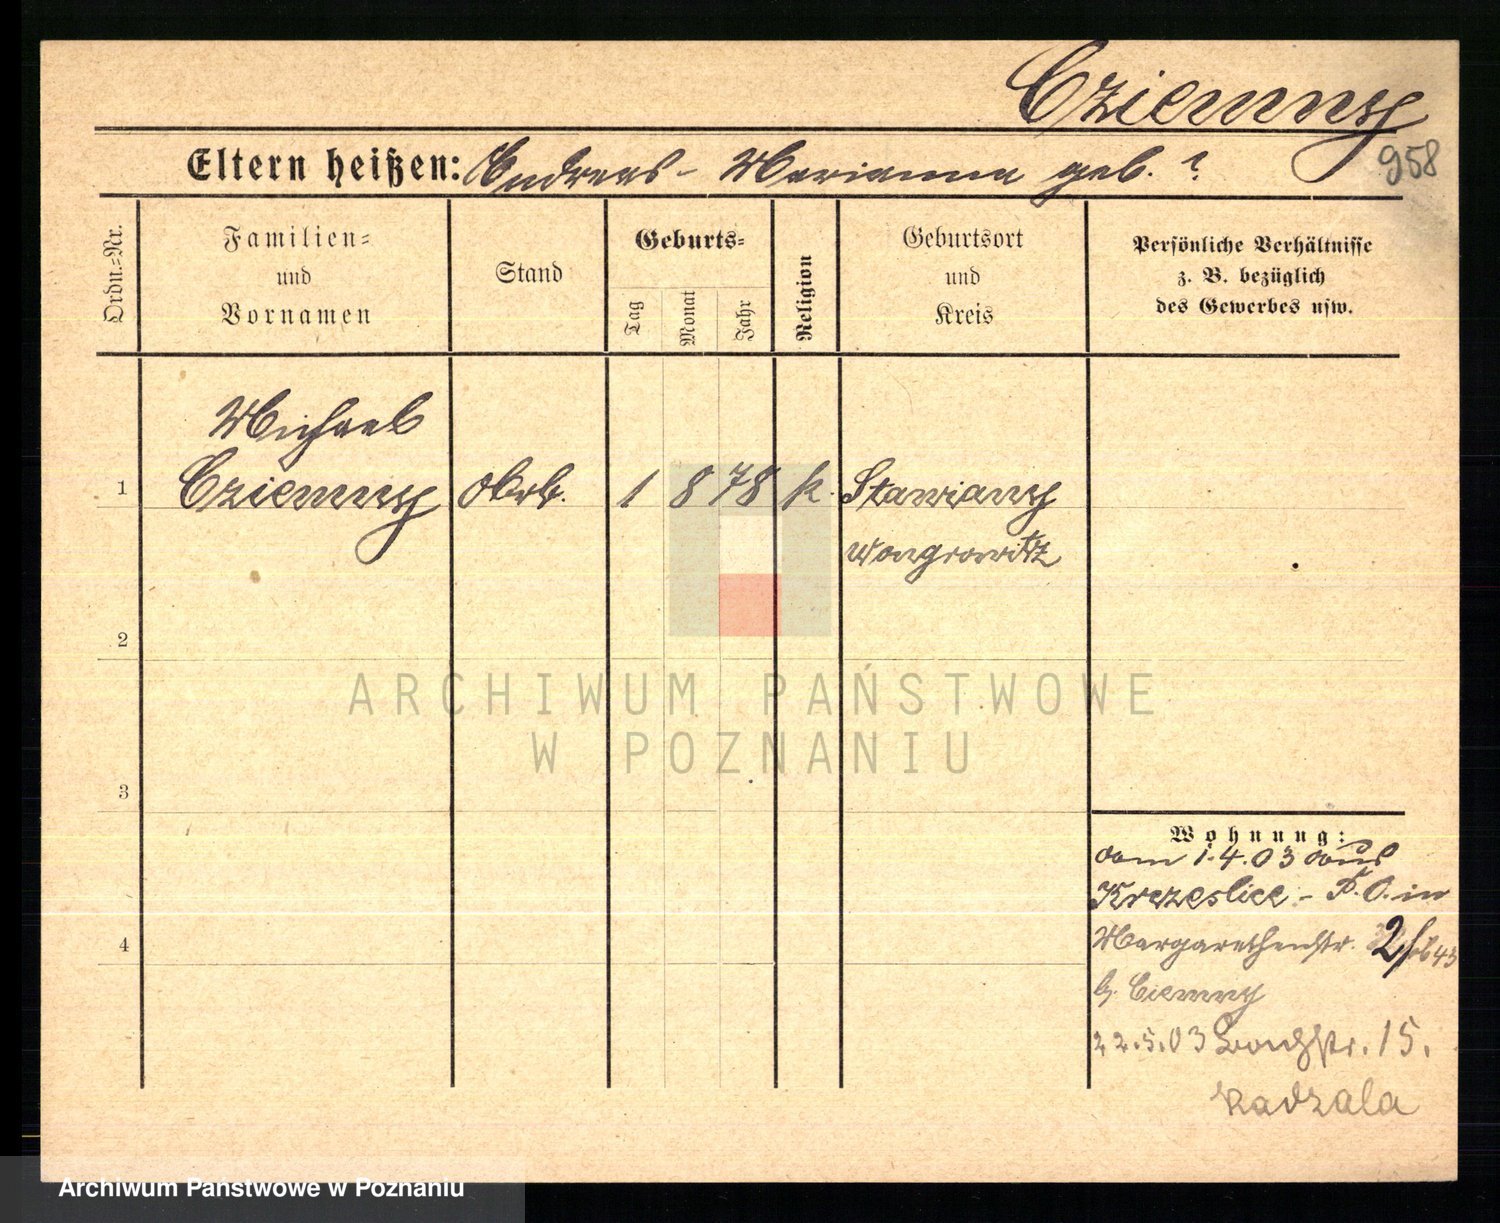 Cziemny
Eltern heißen: Andreas - Marianna geb. ?
958
Ordn.=Nr.
Familien=
und
Vornamen
Stand
Geburts=
Tag
Monat
Jahr
Religion
Geburtsort
und
Kreis
Persönliche Verhältnisse
z. B. bezüglich
des Gewerbes usw.
Michael
1 Cziemny 1 8 78 k. Stawiany
Wongrowitz
2
3
4
Wohnung:
vom 1.4.03 aus
Krzeslice - P. O. in
Margarethenstr. 43
b. Ciemny
22.5.03 15.
Kadzala
ARCHIWUM PAŃSTWOWE
W POZNANIU
Archiwum Państwowe w Poznaniu